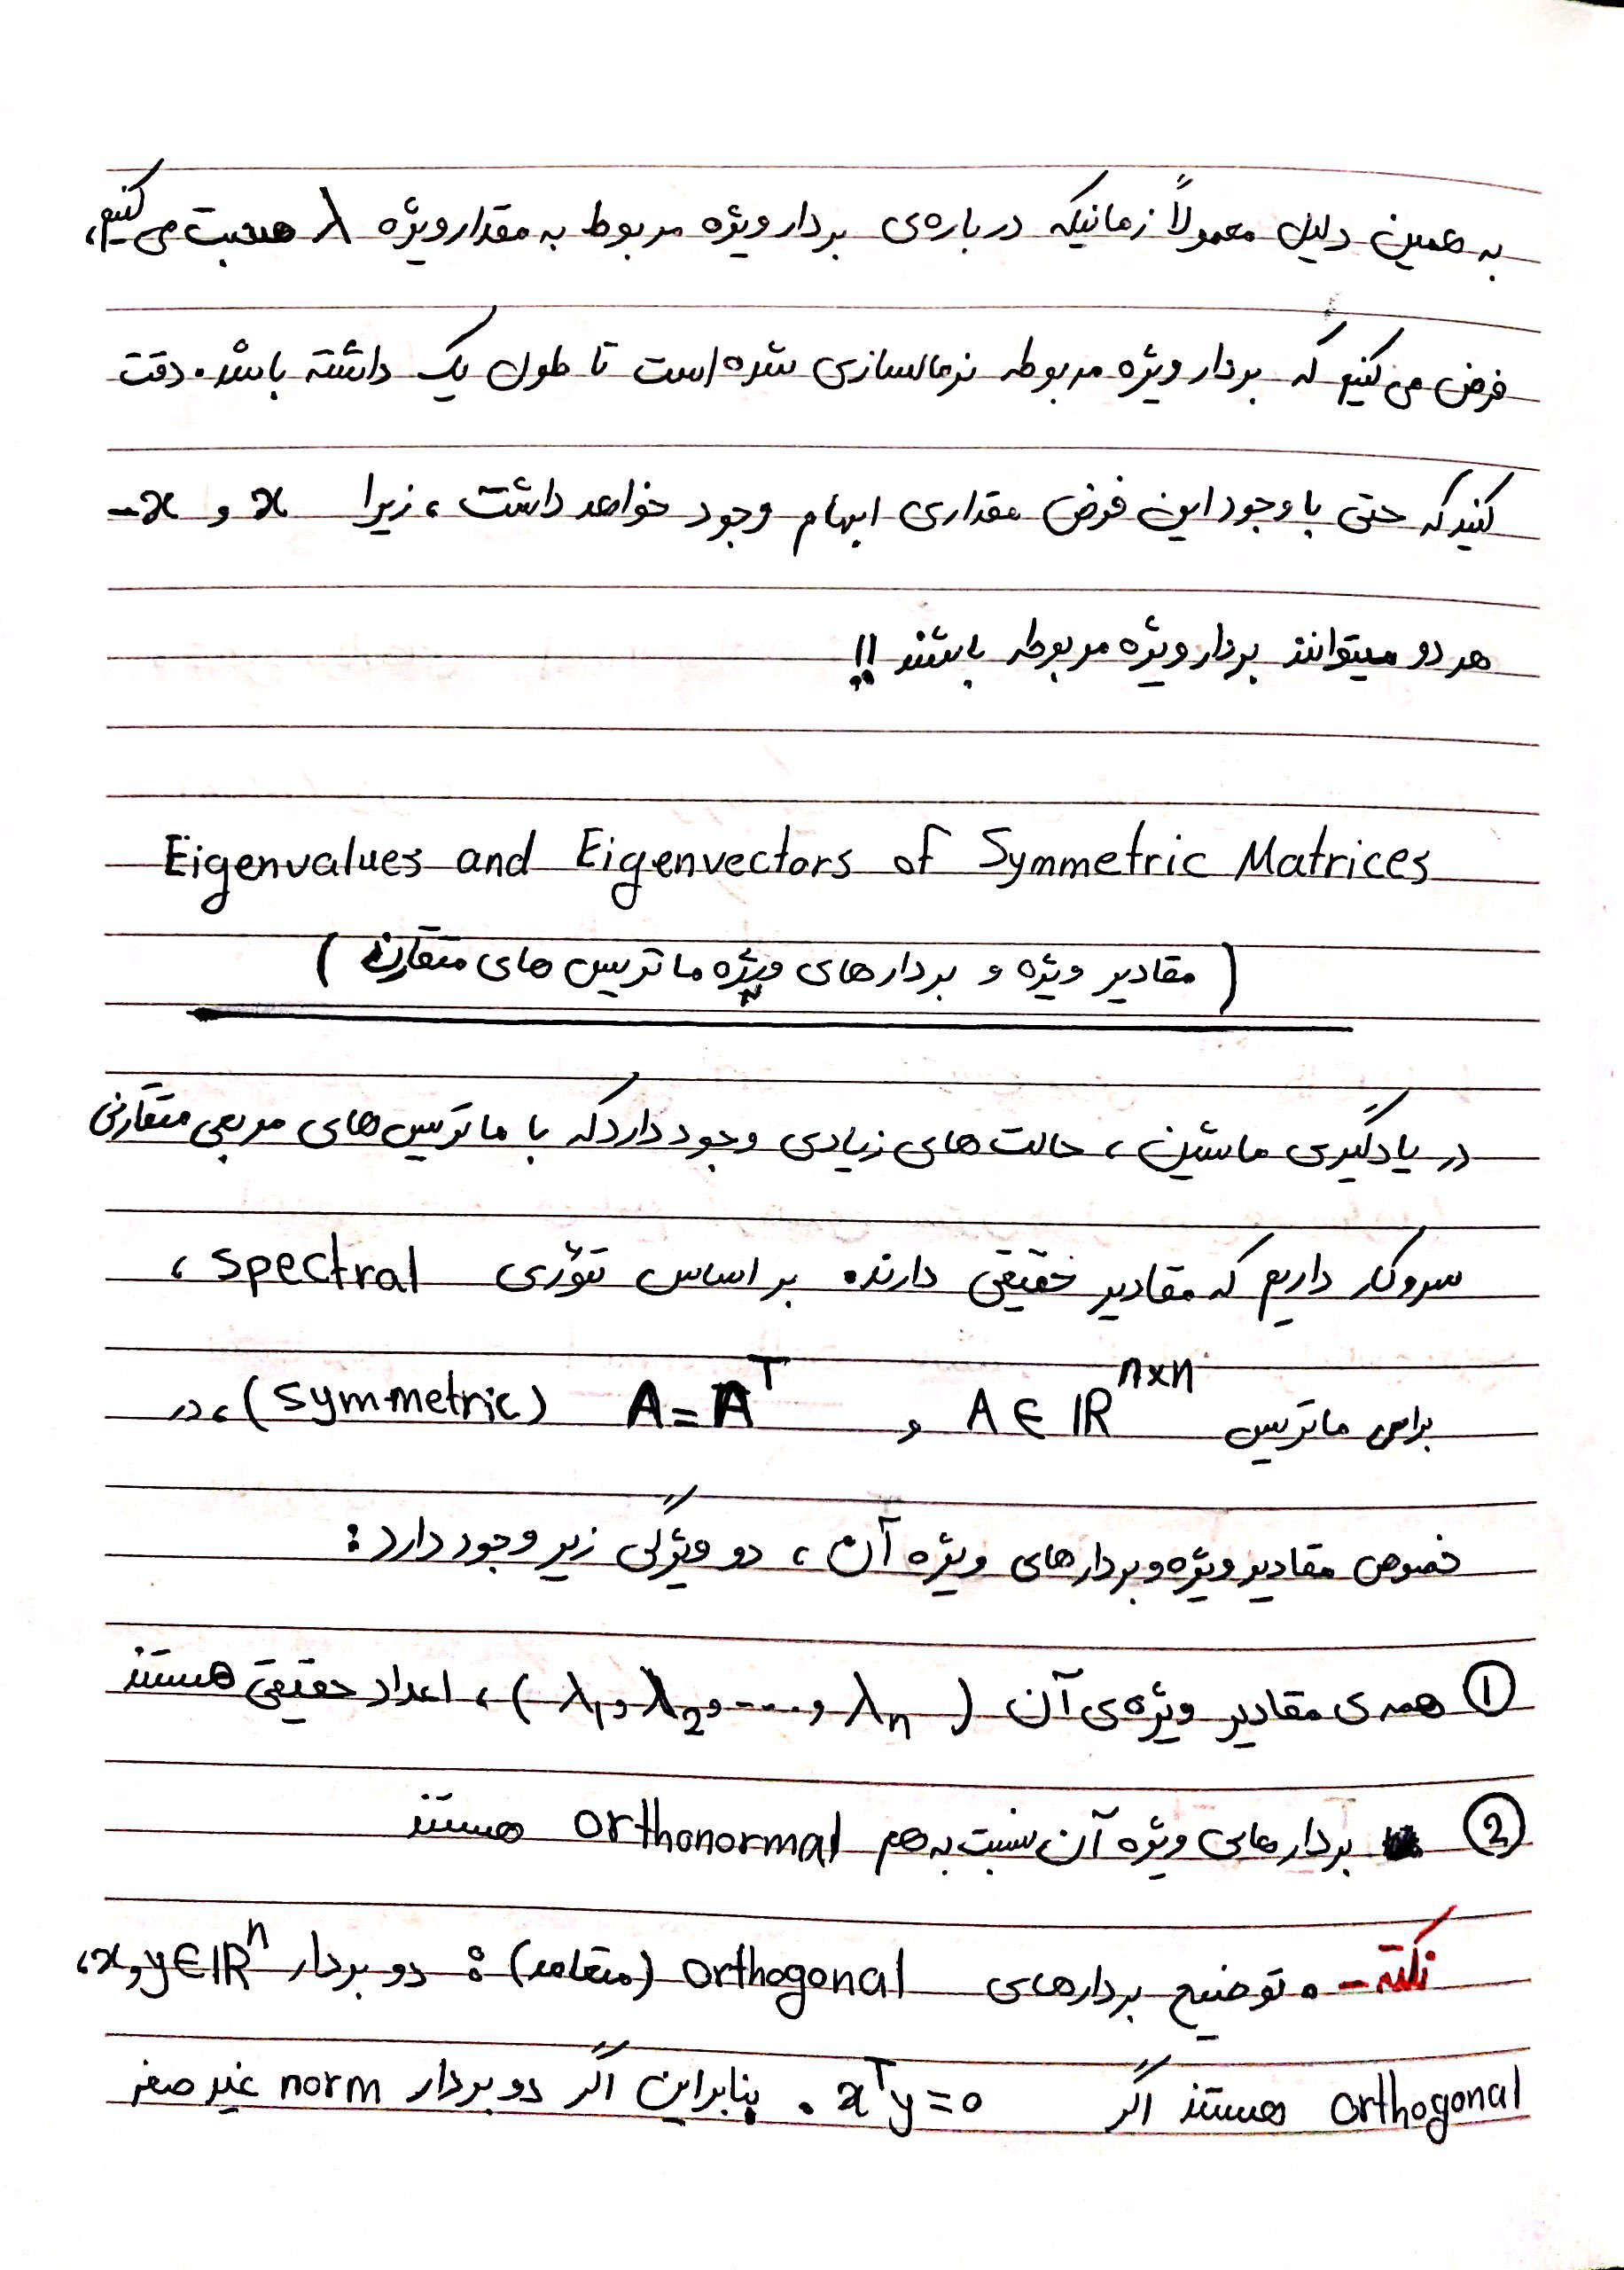 به همین دلیل معمولاً زمانیکه درباره‌ی بردار ویژه مربوط به مقدار ویژه λ صحبت می‌کنیم،
فرض می‌کنیم که بردار ویژه مربوطه نرمالسازی شده است تا طول یک داشته باشد. دقت
کنید که حتی با وجود این فرض مقداری ابهام وجود خواهد داشت، زیرا x و -x
هر دو میتوانند بردار ویژه مربوطه باشند !!
Eigenvalues and Eigenvectors of Symmetric Matrices
( مقادیر ویژه و بردارهای ویژه ماتریس های متقارن )
در یادگیری ماشین، حالت های زیادی وجود دارد که با ماتریس‌های مربعی متقارنی
سروکار داریم که مقادیر حقیقی دارند. بر اساس تئوری spectral،
برای ماتریس A ∈ ℝⁿˣⁿ و A = Aᵀ (symmetric)، در
خصوص مقادیر ویژه و بردارهای ویژه آن، دو ویژگی زیر وجود دارد:
① همه ی مقادیر ویژه‌ی آن (λ₁, λ₂, ...., λₙ)، اعداد حقیقی هستند
② بردارهای ویژه آن نسبت به هم orthonormal هستند
نکته - • توضیح بردارهای orthogonal (متعامد): دو بردار x,y∈ℝⁿ،
orthogonal هستند اگر xᵀy=0 . بنابراین اگر دو بردار norm غیر صفر